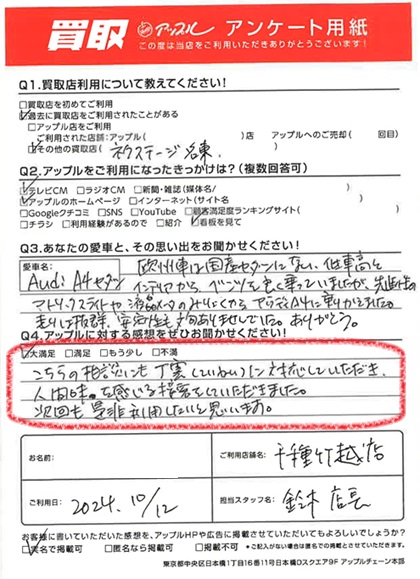 買取 アップル アンケート用紙
この度は当店をご利用いただきありがとうございます!
Q1.買取店利用について教えてください!
□買取店を初めてご利用
☑過去に買取店をご利用されたことがある
□アップル店をご利用
ご利用された店舗:アップル( )店 アップルへのご売却( 回目)
☑その他の買取店( ネクステージ名東 )
Q2.アップルをご利用になったきっかけは?(複数回答可)
☑テレビCM □ラジオCM □新聞・雑誌(媒体名/ )
☑アップルのホームページ □インターネット(サイト名 )
□Googleクチコミ □SNS □YouTube □顧客満足度ランキングサイト( )
□チラシ □利用経験があるので □紹介 ☑看板を見て
Q3.あなたの愛車と、その思い出をお聞かせください!
愛車名:
Audi A4セダン
欧州車は国産セダンにない、低車高と
インテリアから、ベンツを
走りは抜群、安定性も
ありがとう。
Q4.アップルに対する感想をぜひお聞かせください!
☑大満足 □満足 □もう少し □不満
こちらの相談にも丁寧(ていねい)に対応していただき、
人間味を感じる接客をしていただきました。
次回も是非利用したいと思います。
お名前:
ご利用店舗名:
千種竹越店
ご利用日:
2024.10/12
担当スタッフ名:
鈴木 店長
お客様に書いていただいた感想を、アップルHPや広告に掲載させていただいてもよろしいでしょうか?
☑実名で掲載可 □匿名なら掲載可 □掲載不可 *ご記入がない場合は匿名での掲載とさせていただきます。
東京都中央区日本橋1丁目16番11号日本橋Dスクエア9F アップルチェーン本部